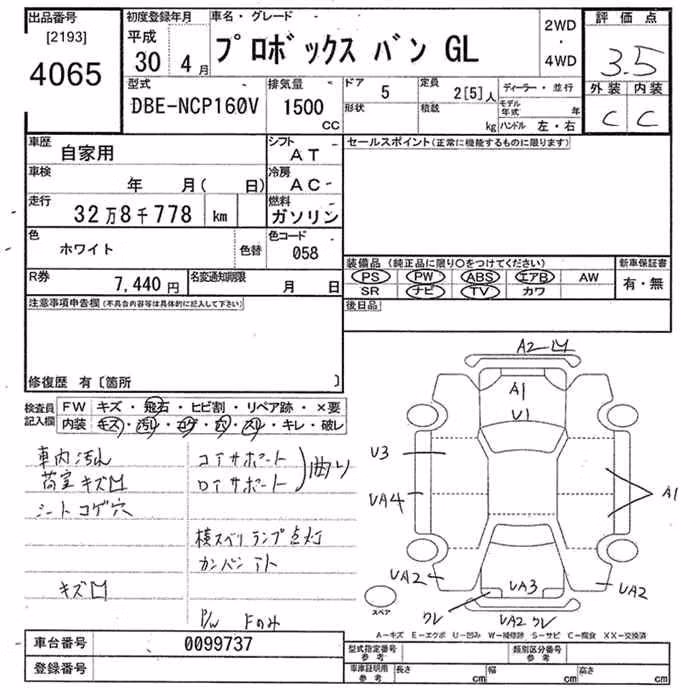 出品番号 初度登録年月 車名・グレード 2WD 評価点
[2193] 平成 30 4月 プロボックス バン GL ・ 3.5
4065 4WD
型式 排気量 ドア 5 定員 2[5]人 ディーラー・並行 外装 内装
DBE-NCP160V 1500 CC 形状 積載 kg モデル年式 年 C C
ハンドル 左・右
車歴 自家用 シフト AT セールスポイント(正常に機能するものに限ります)
車検 年 月( 日) 冷房 AC
走行 32万8千778 km 燃料 ガソリン
色 ホワイト 色替 色コード 058
装備品(純正品に限り○をつけてください) 新車保証書
R券 7,440円 名変通知期限 月 日 PS PW ABS エアB AW 有・無
SR ナビ TV カワ
注意事項申告欄(不具合内容等は具体的に記入して下さい) 後日品
修復歴 有〔箇所 〕
検査員 FW キズ・飛石・ヒビ割・リペア跡・×要
記入欄 内装 キズ・汚れ・コゲ・穴・スレ・キレ・破レ
車内汚れ コアサポート
荷室キズ凹 ロアサポート 曲り
シートコゲ穴
横スベリランプ点灯
カンバンアト
キズ凹
P/W Fのみ
A2凹
A1
U1
U3
UA4
A1
UA2
UA3
UA2
クレ
UA2 クレ
スペア
A−キズ E−エクボ U−凹み W−補修跡 S−サビ C−腐食 XX−交換済
車台番号 0099737 型式指定番号 参考 類別区分番号 参考
登録番号 車庫証明用 参考 長さ cm 幅 cm 高さ cm